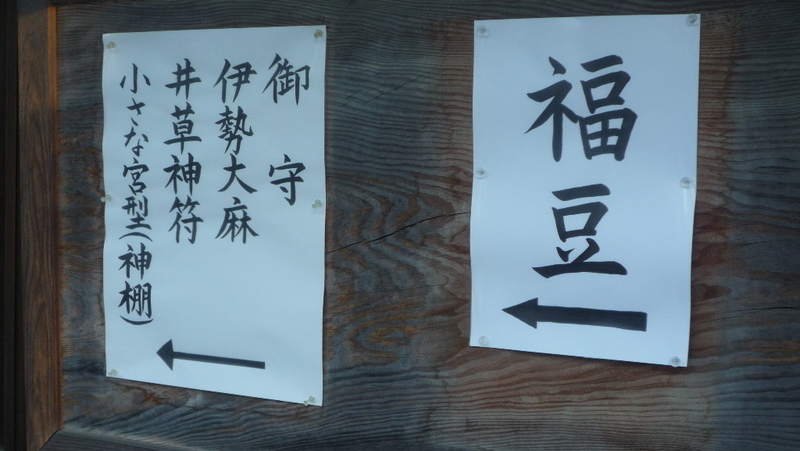 福豆
御守
伊勢大麻
井草神符
小さな宮型(神棚)